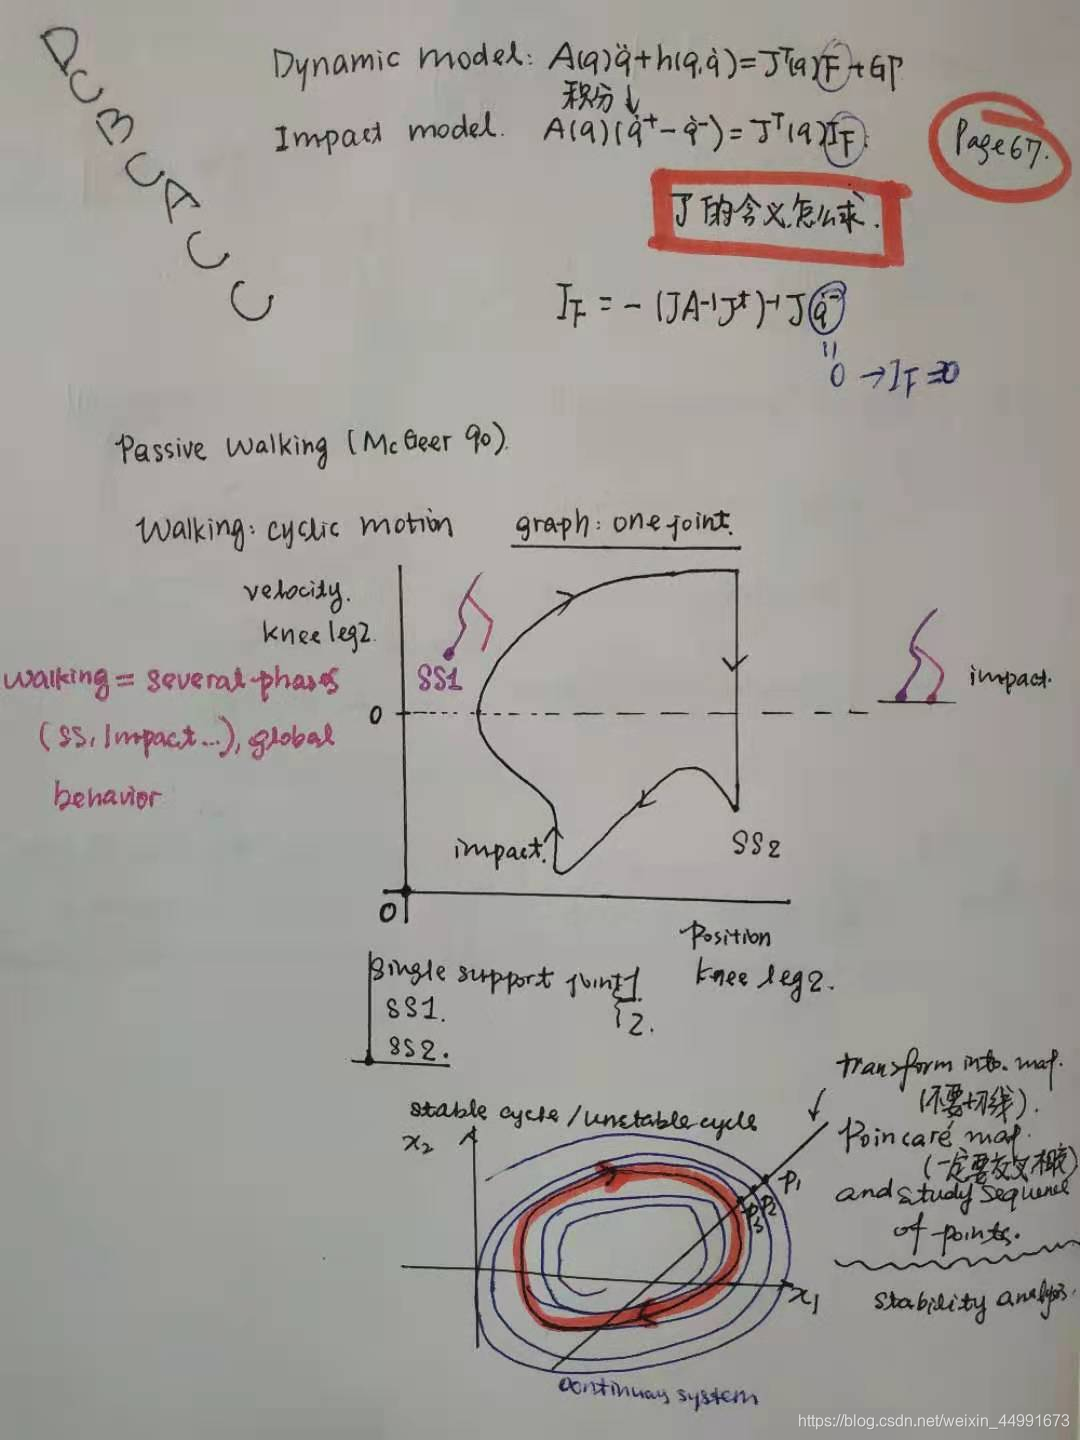 DCBCACC
Dynamic model: A(q)q̈+h(q,q̇)=Jᵀ(q)F+GΓ
积分↓
Impact model. A(q)(q̇⁺-q̇⁻)=Jᵀ(q)IF
Page 67.
J的含义,怎么求.
IF = -(JA-1Jᵗ)-1Jq̇⁻
=
0 → IF =0
Passive walking (McGeer 90).
Walking: cyclic motion
graph: one joint.
velocity.
knee leg2.
walking = several phases
(SS, Impact...), global
behavior
SS1
impact.
0
impact.
SS2
0
Position
knee leg2.
single support joint 1.
2.
SS1.
SS2.
stable cycle / unstable cycle
x₂
transform into. map.
(不要切线).
Poincaré map.
(一定要交叉相交)
and study sequence
of points.
stability analysis.
P₁
P₂
P₃
x₁
continuous system
https://blog.csdn.net/weixin_44991673